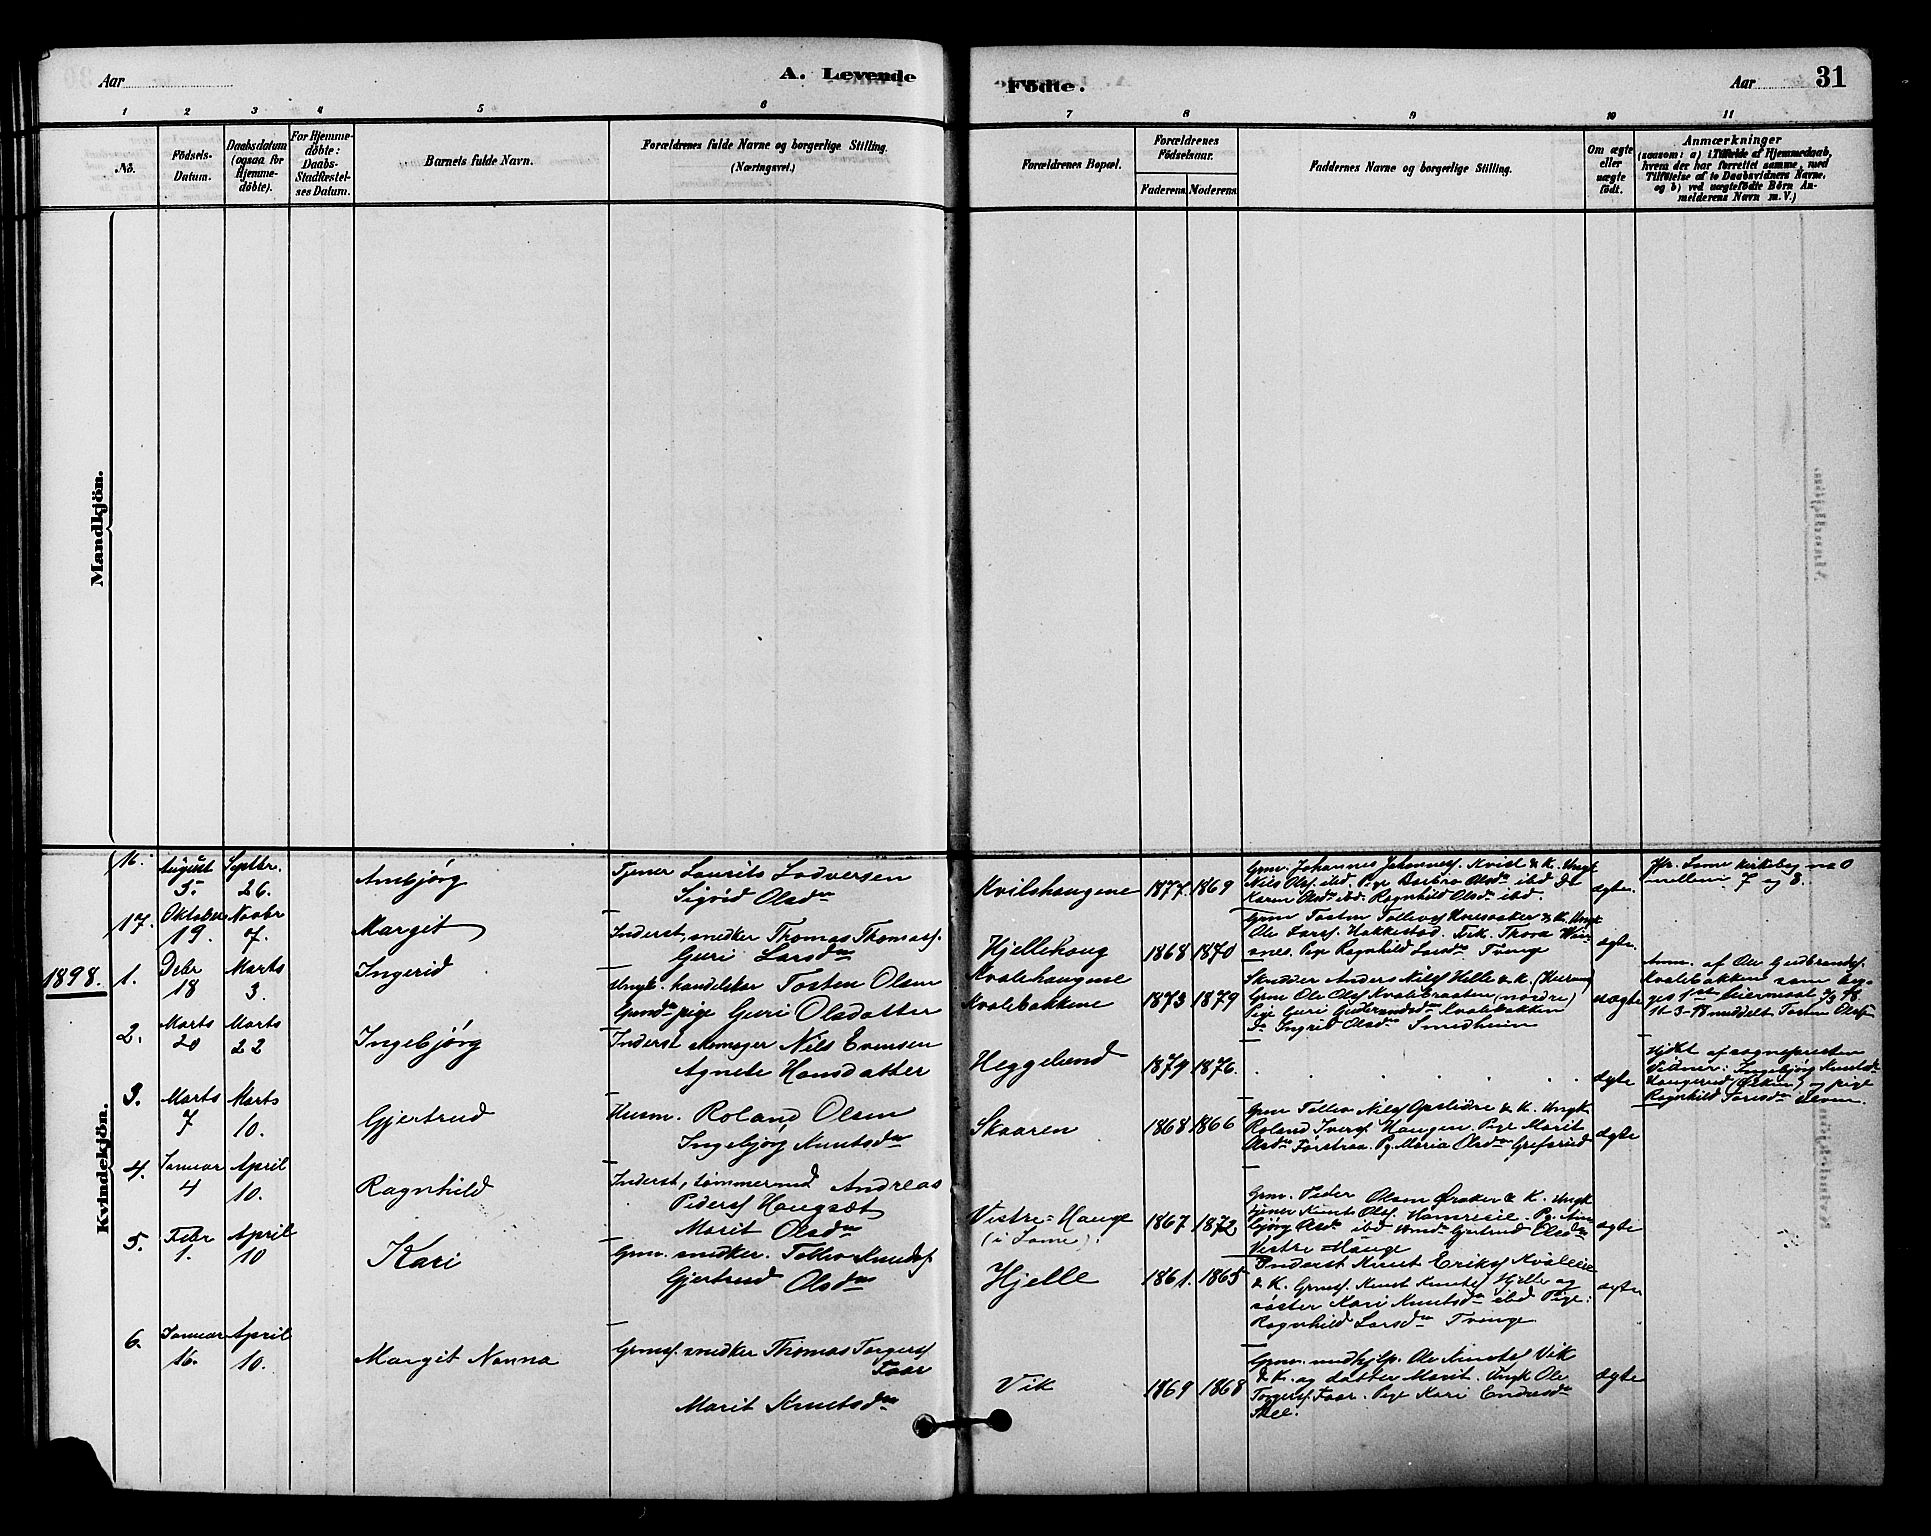 Aar
A. Levende
Födte.
Aar
31
1 2 3 4 5 6 7 8 9 10 11
No.
Födsels-
Datum.
Daabsdatum
(ogsaa for
Hjemme-
döbte).
For Hjemme-
döbte:
Daabs-
Stadfæstel-
ses Datum.
Barnets fulde Navn.
Forældrenes fulde Navne og borgerlige Stilling.
(Næringsvei.)
Forældrenes Bopæl.
Forældrenes
Födselsaar.
Faderens. Moderens.
Faddernes Navne og borgerlige Stilling.
Om ægte
eller
uægte
födt.
Anmærkninger
(saasom: a) i Tilfælde af Hjemmedaab,
hvem der har forrettet samme, med
Tilföielse af to Daabsvidners Navne,
og b) ved uægtefödte Börn An-
melderens Navn m.V.)
Mandkjön.
Kvindekjön.
16.
August
5.
Septbr.
26.
Ambjörg
Tjener Laurits Lodversen
Sigrid Olsdr
Kvilshaugene
1877. 1869
Grm. Johannes Johannes. Kvist & K. Ungk
Nils Olss. ibd. Pige Barbro Olsdr ibd
Karen Olsdr ibd. Ragnhild Olsdr ibd.
ægte.
Jfr. Lome kirkebog
mellem 7 og 8.
17.
Oktober
19.
Novbr
7.
Margit
Inderst, snedker Thomas Thomass.
Guri Larsdr
Hjellehaug
1868 1870
Ole Larss. Hakkestad.
Pige Ragnhild Larsdr Tvenge
ægte.
1898.
1.
Febr
18
Marts
3.
Ingerid
Ungk. handelskar Tosten Olsen
Grmdr pige Guri Olsdatter
Kvalehaugene
Kvalebakkene
1873 1879
Skrædder Anders Nilss Helle & K.
Grm Ole Olss Kvalebraaten (nordre)
Pige Guri Gudbrandsdr Kvalebakken
Do Ingrid Olsdr Smedheim
uægte
Anm. af Ole Gudbrandss.
Kvalebakkene
11-3-98 meddelt Tosten Olsen
2.
Marts
20
Marts
22
Ingebjörg
Inderst skomager Nils Evensen
Agnete Hansdatter
Heggelund
1879 1876.
ægte
Hjdbt af sognepresten
Vidner: Ingebjörg Knutsdr
Haugerud og pige
Ragnhild Toresdr
3.
Marts
7
Marts
10.
Gjertrud
Husm. Roland Olsen
Ingebjörg Knutsdr
Skaaren
1868 1866
Grm Tollev Nilss Opslidre & K. Ungk
Roland Iverss Haugen. Pige Marit
Olsdr Förstraa. Pg. Maria Olsdr Grefsrud
ægte
4.
Januar
4
April
10.
Ragnhild
Inderst, tömmermd Andreas
Pederss Haugsæt
Marit Olsdr
Vestre-Hauge
(i Lome)
1867 1872
Grm. Peder Olsen Öraker & K. Ungk
tjener Knut Olss. Hamresie. Pg. Am-
björg Olsdr ibd Gjertrud Olsdr
Vestre Hauge
ægte
5.
Febr
1.
April
10
Kari
Grm. snedker. Tollev Knudss.
Gjertrud Olsdr
Hjelle
1861. 1865
Inderst Knut Erikss Kvaleie
& K. Grmss. Knut Knutss Hjelle og
söster Kari Knutsdr ibd Pige:
Ragnhild Larsdr Tvenge
ægte
6.
Januar
16.
April
10.
Margit Nanna
Grmss. snedker Thomas Torgerss
Faar
Marit Knutsdr
Vik
1869 1868
Grm. medhjelp. Ole Knutss Vik
& K. og datter Marit. Ungk Ole
Torgerss Faar. Pige Kari Endresdr
Thee.
ægte